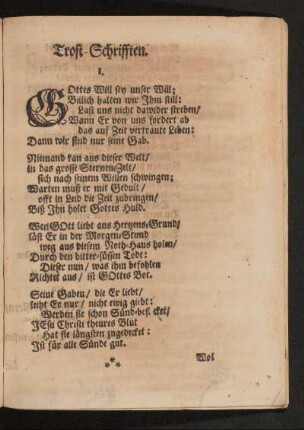 Trost-Schrifften.
I.
GOttes Will sey unser Will;
Billich halten wir Ihm still:
Last uns nicht dawider streben/
Wann Er von uns fordert ab
das auf Zeit vertraute Leben:
Dann wir sind nur seine Gab.
Niemand kan aus dieser Welt/
in das grosse Sternen-Zelt/
sich nach seinem Willen schwingen;
Warten muß er mit Gedult/
offt in Leid die Zeit zubringen/
Biß Ihn holet Gottes Huld.
Wen GOtt liebt aus Hertzens-Grund/
läst Er in der Morgen-Stund
weg aus diesem Noth-Haus holen/
Durch den bitter-süssen Todt:
Dieser nun/ was ihm befohlen
Richtet aus/ ist GOttes Bot.
Seine Gaben/ die Er liebt/
leiht Er nur/ nicht ewig giebt:
Werden sie schon Sünd-beflecket/
JEsu Christi theures Blut
Hat sie längsten zugedecket:
Ist für alle Sünde gut.
Wol